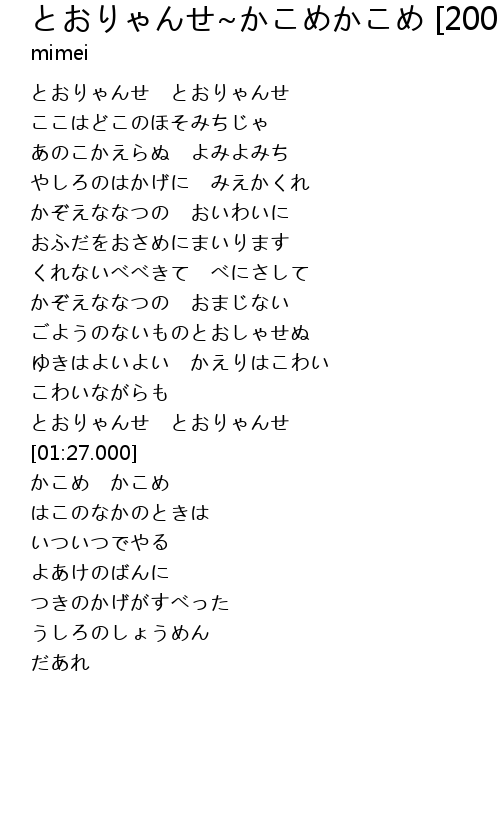 とおりゃんせ~かこめかこめ [200
mimei
とおりゃんせ　とおりゃんせ
ここはどこのほそみちじゃ
あのこかえらぬ　よみよみち
やしろのはかげに　みえかくれ
かぞえななつの　おいわいに
おふだをおさめにまいります
くれないべべきて　べにさして
かぞえななつの　おまじない
ごようのないものとおしゃせぬ
ゆきはよいよい　かえりはこわい
こわいながらも
とおりゃんせ　とおりゃんせ
[01:27.000]
かこめ　かこめ
はこのなかのときは
いついつでやる
よあけのばんに
つきのかげがすべった
うしろのしょうめん
だあれ